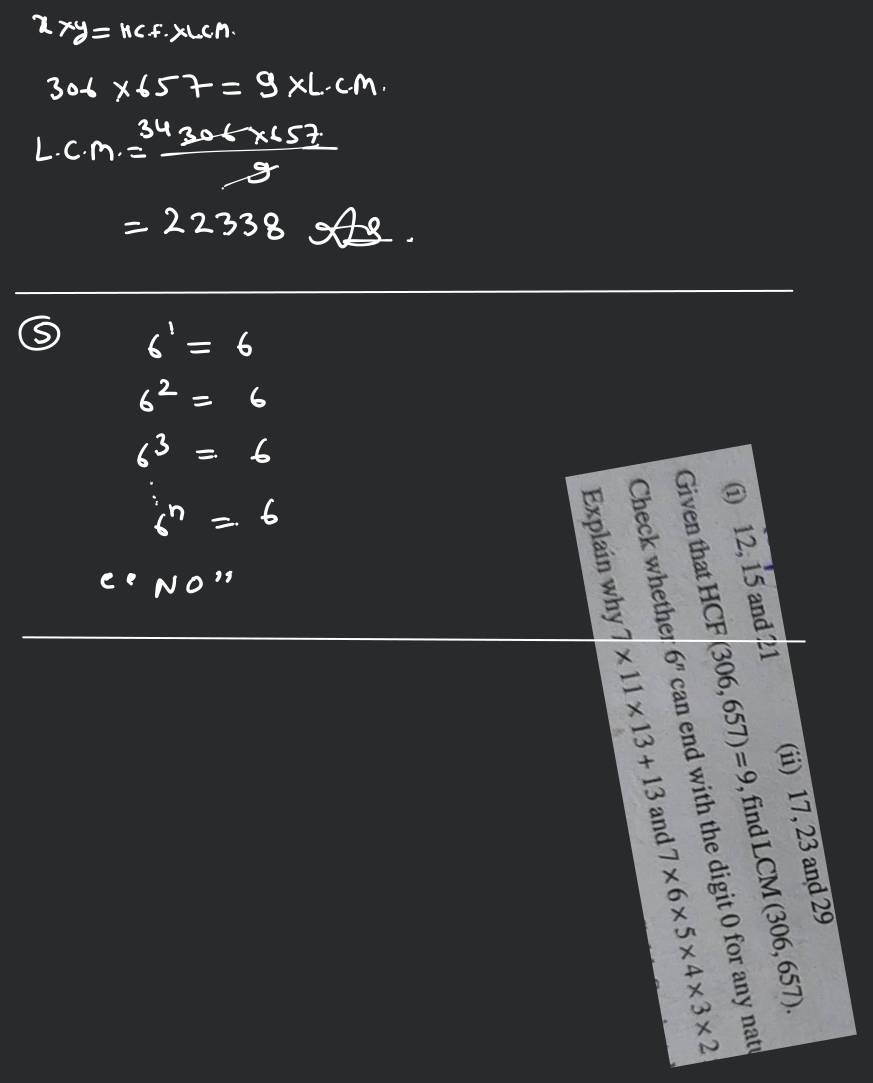 x × y = H.C.F. × L.C.M.
306 × 657 = 9 × L.C.M.
L.C.M. = 34 306 × 657
9
= 22338 As.
5
6¹ = 6
6² = 6
6³ = 6
6ⁿ = 6
"NO"
(i) 12, 15 and 21 (ii) 17, 23 and 29
Given that HCF (306, 657) = 9, find LCM (306, 657).
Check whether 6ⁿ can end with the digit 0 for any natu
Explain why 7 × 11 × 13 + 13 and 7 × 6 × 5 × 4 × 3 × 2